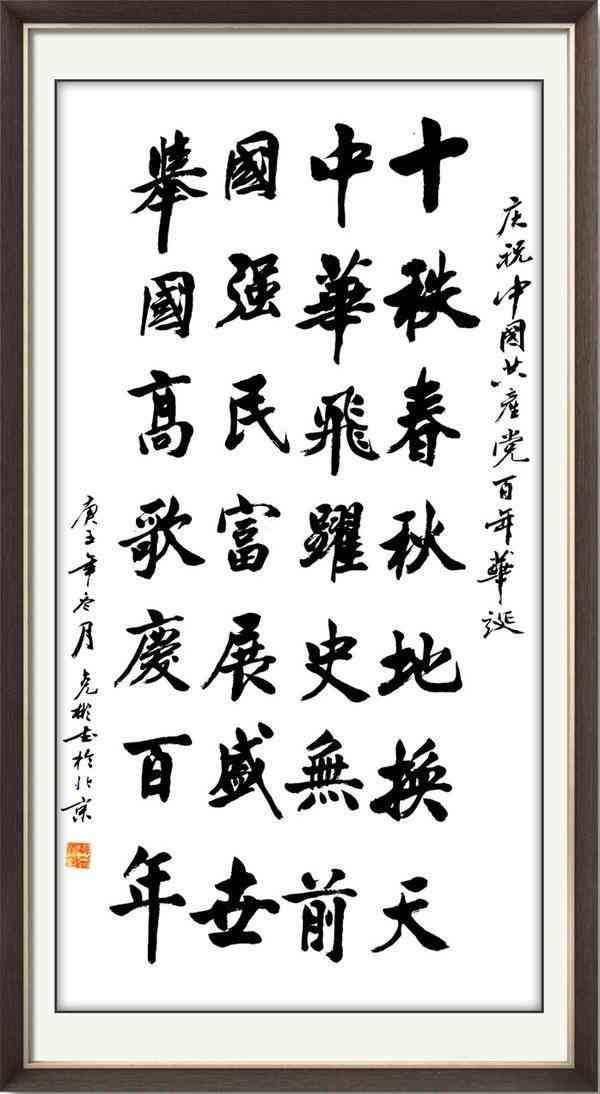 庆祝中國共産党百年華诞
十秩春秋地换天
中華飛躍史無前
國强民富展盛世
舉國高歌慶百年
庚子年冬月克彬书於北京